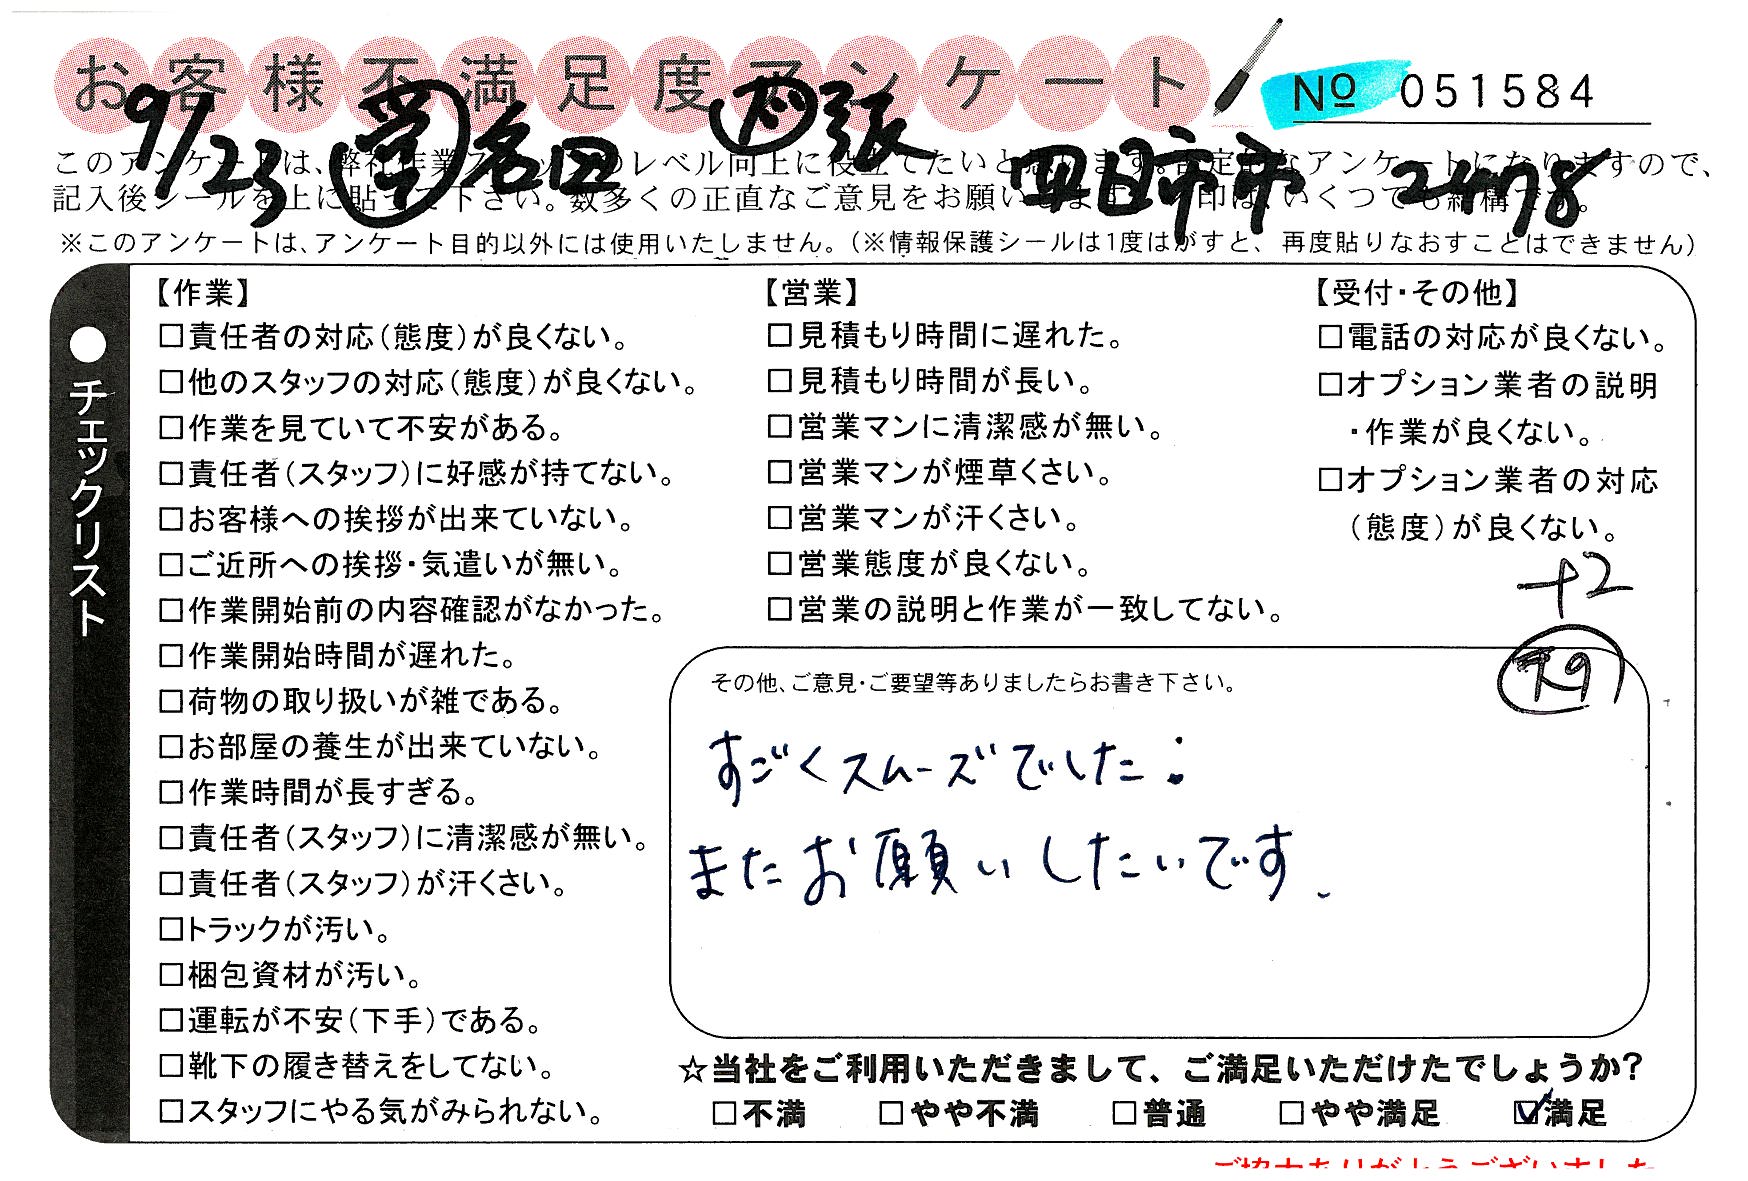 お客様不満足度アンケート
№ 051584
9/23 名田 四日市市 2478
このアンケートは、弊社作業スタッフのレベル向上に役立てたいと思います。否定的なアンケートになりますので、
記入後シールを上に貼って下さい。数多くの正直なご意見をお願いします。印は、いくつでも結構です。
※このアンケートは、アンケート目的以外には使用いたしません。（※情報保護シールは1度はがすと、再度貼りなおすことはできません）
●チェックリスト
【作業】
□責任者の対応（態度）が良くない。
□他のスタッフの対応（態度）が良くない。
□作業を見ていて不安がある。
□責任者（スタッフ）に好感が持てない。
□お客様への挨拶が出来ていない。
□ご近所への挨拶・気遣いが無い。
□作業開始前の内容確認がなかった。
□作業開始時間が遅れた。
□荷物の取り扱いが雑である。
□お部屋の養生が出来ていない。
□作業時間が長すぎる。
□責任者（スタッフ）に清潔感が無い。
□責任者（スタッフ）が汗くさい。
□トラックが汚い。
□梱包資材が汚い。
□運転が不安（下手）である。
□靴下の履き替えをしてない。
□スタッフにやる気がみられない。
【営業】
□見積もり時間に遅れた。
□見積もり時間が長い。
□営業マンに清潔感が無い。
□営業マンが煙草くさい。
□営業マンが汗くさい。
□営業態度が良くない。
□営業の説明と作業が一致してない。
【受付・その他】
□電話の対応が良くない。
□オプション業者の説明
・作業が良くない。
□オプション業者の対応
（態度）が良くない。
+2
その他、ご意見・ご要望等ありましたらお書き下さい。
すごくスムーズでした!
またお願いしたいです.
☆当社をご利用いただきまして、ご満足いただけたでしょうか?
□不満 □やや不満 □普通 □やや満足 ☑満足
ご協力ありがとうございました